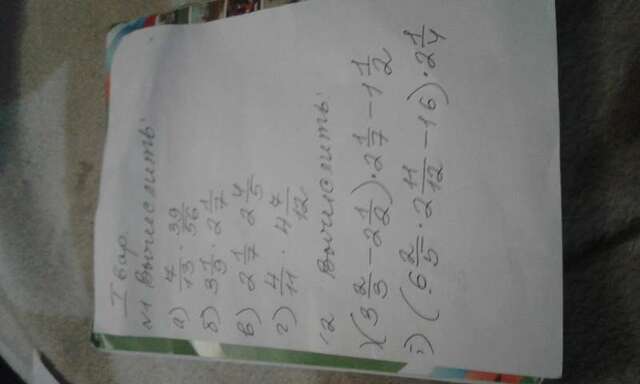 I вар.
№1 Вычислить:
а) 7/13 · 39/56
б) 3 1/9 · 2 1/7
в) 2 1/7 2 4/5
г) 4/11 · 4 7/12
2 Вычислить:
) (3 2/3 - 2 1/2) · 2 1/7 - 1 1/2
) (6 2/5 · 2 11/12 - 16) · 2 1/4